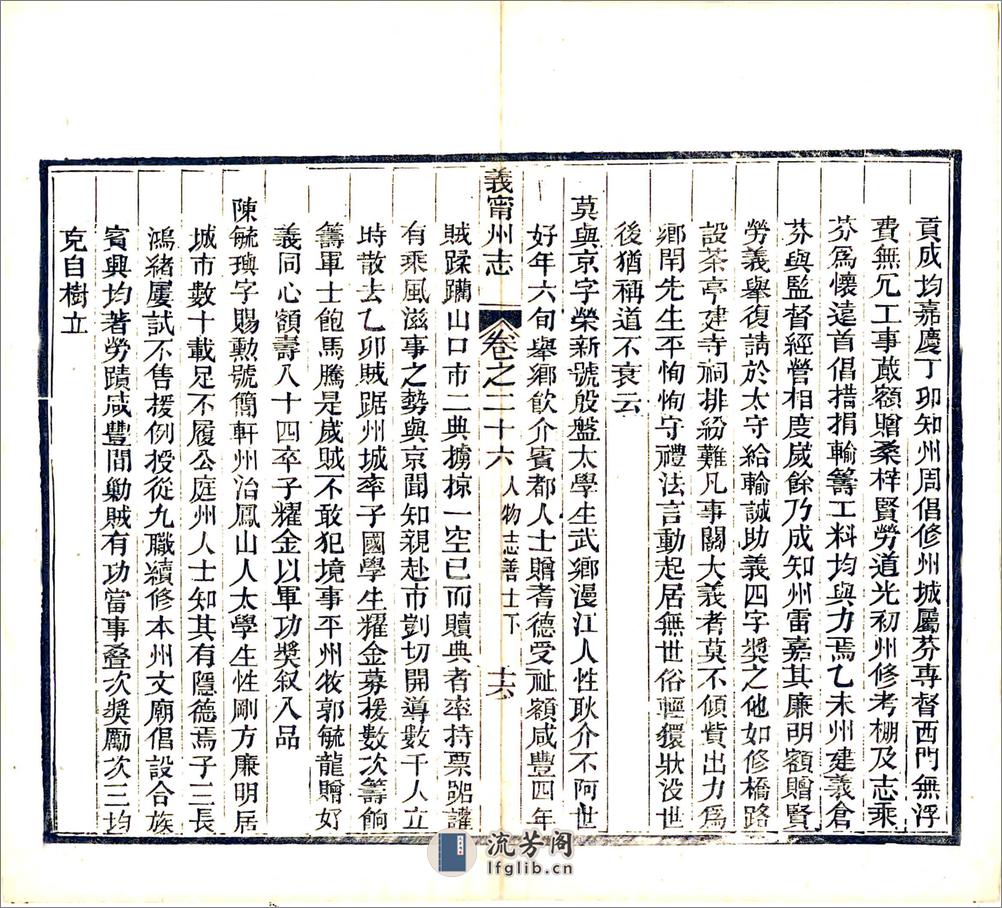 貢成均嘉慶丁卯知州周倡修州城屬芬專督西門無浮
費無冗工事蕆額贈桑梓賢勞道光初州修考棚及志乘
芬爲懷遠首倡措捐輸籌工料均與力焉乙未州建義倉
芬與監督經營相度歲餘乃成知州雷嘉其廉明額贈賢
勞義舉復請於太守給輸誠助義四字奬之他如修橋路
設茶亭建寺祠排紛難凡事關大義者莫不傾貲出力爲
鄉閈先生平恂恂守禮法言動起居無世俗輕獧狀没世
後猶稱道不衰云
莫與京字榮新號殷盤太學生武鄉漫江人性耿介不阿世
好年六旬舉鄉飲介賓都人士贈耆德受祉額咸豐四年
義甯州志 卷之二十六 人物志善士下 十六
賊蹂躪山口市二典擄掠一空已而贖典者率持票踞讙
有乘風滋事之勢與京聞知親赴市剴切開導數千人立
時散去乙卯賊踞州城率子國學生耀金募援數次籌餉
籌軍士飽馬騰是歲賊不敢犯境事平州牧郭毓龍贈好
義同心額壽八十四卒子耀金以軍功奬叙八品
陳毓璵字賜勳號簡軒州治鳳山人太學生性剛方廉明居
城市數十載足不履公庭州人士知其有隱德焉子三長
鴻緒屢試不售援例授從九職續修本州文廟倡設合族
賓興均著勞蹟咸豐間勦賊有功當事叠次奬勵次三均
克自樹立
流芳阁
lfglib.cn